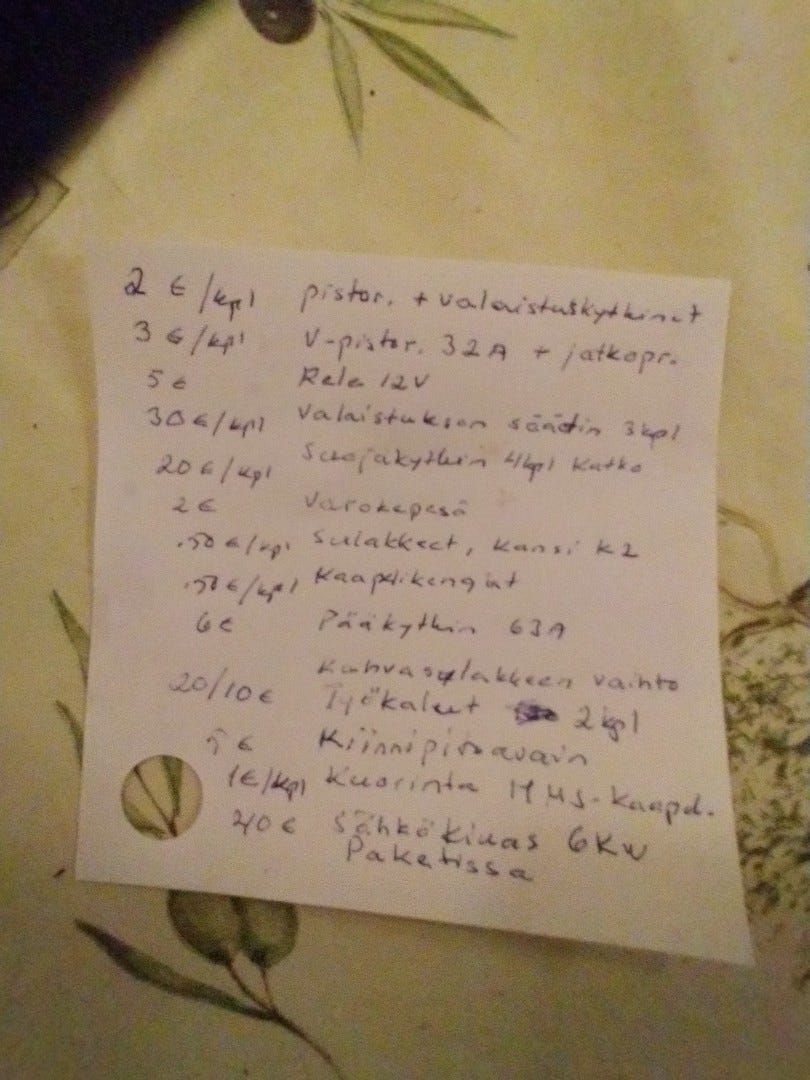 2 €/kpl pistor. + valaistuskytkimet
3 €/kpl V-pistor. 32A + jatkopr.
5 € Rele 12V
30 €/kpl Valaistuksen säädin 3kpl
20 €/kpl Suojakytkin 4kpl Katko
2 € Varokepesä
.50 €/kpl Sulakkeet, kansi K2
.50 €/kpl Kaapelikengät
6 € Pääkytkin 63A
Kahvasulakkeen vaihto
20/10 € Työkalut 2kpl
5 € Kiinnipitoavain
1€/kpl Kuorinta MMJ-Kaapel.
40 € Sähkökiuas 6KW
Paketissa